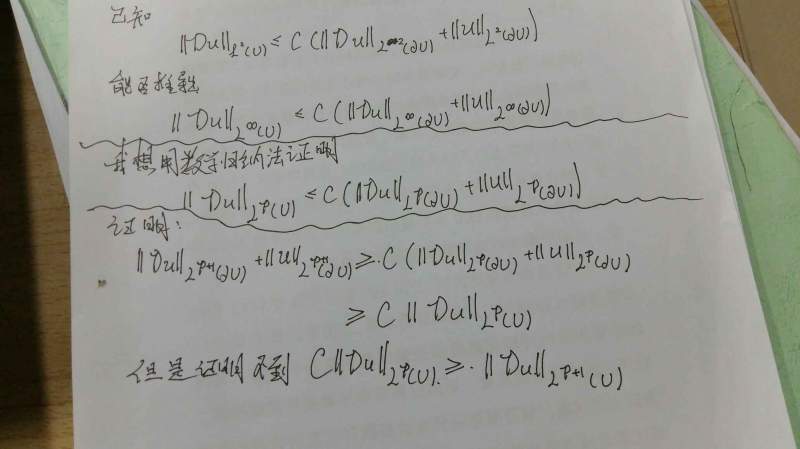 已知
||Du||_{L²(U)} ≤ C (||Du||_{L²(∂U)} + ||u||_{L²(∂U)})
能否推导
||Du||_{L^∞(U)} ≤ C (||Du||_{L^∞(∂U)} + ||u||_{L^∞(∂U)})
我想用数学归纳法证明
||Du||_{L^p(U)} ≤ C (||Du||_{L^p(∂U)} + ||u||_{L^p(∂U)})
证明:
||Du||_{L^{p+1}(∂U)} + ||u||_{L^{p+1}(∂U)} ≥ C (||Du||_{L^p(∂U)} + ||u||_{L^p(∂U)})
≥ C ||Du||_{L^p(U)}
但是证明不到 C||Du||_{L^p(U)} ≥ ||Du||_{L^{p+1}(U)}